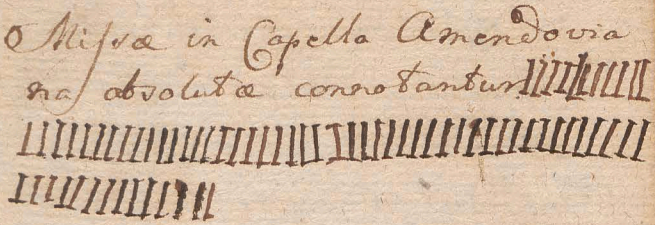 Missæ in Capella Amendovia
na absolutæ connotantur